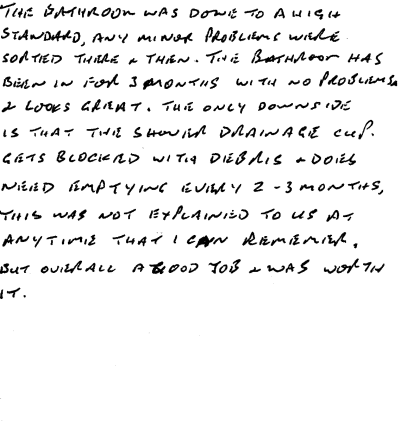 THE BATHROOM WAS DONE TO A HIGH
STANDARD, ANY MINOR PROBLEMS WERE
SORTED THERE & THEN. THE BATHROOM HAS
BEEN IN FOR 3 MONTHS WITH NO PROBLEMS
& LOOKS GREAT. THE ONLY DOWNSIDE
IS THAT THE SHOWER DRAINAGE CUP.
GETS BLOCKED WITH DEBRIS & DOES
NEED EMPTYING EVERY 2-3 MONTHS,
THIS WAS NOT EXPLAINED TO US AT
ANYTIME THAT I CAN REMEMBER.
BUT OVERALL A GOOD JOB & WAS WORTH
IT.